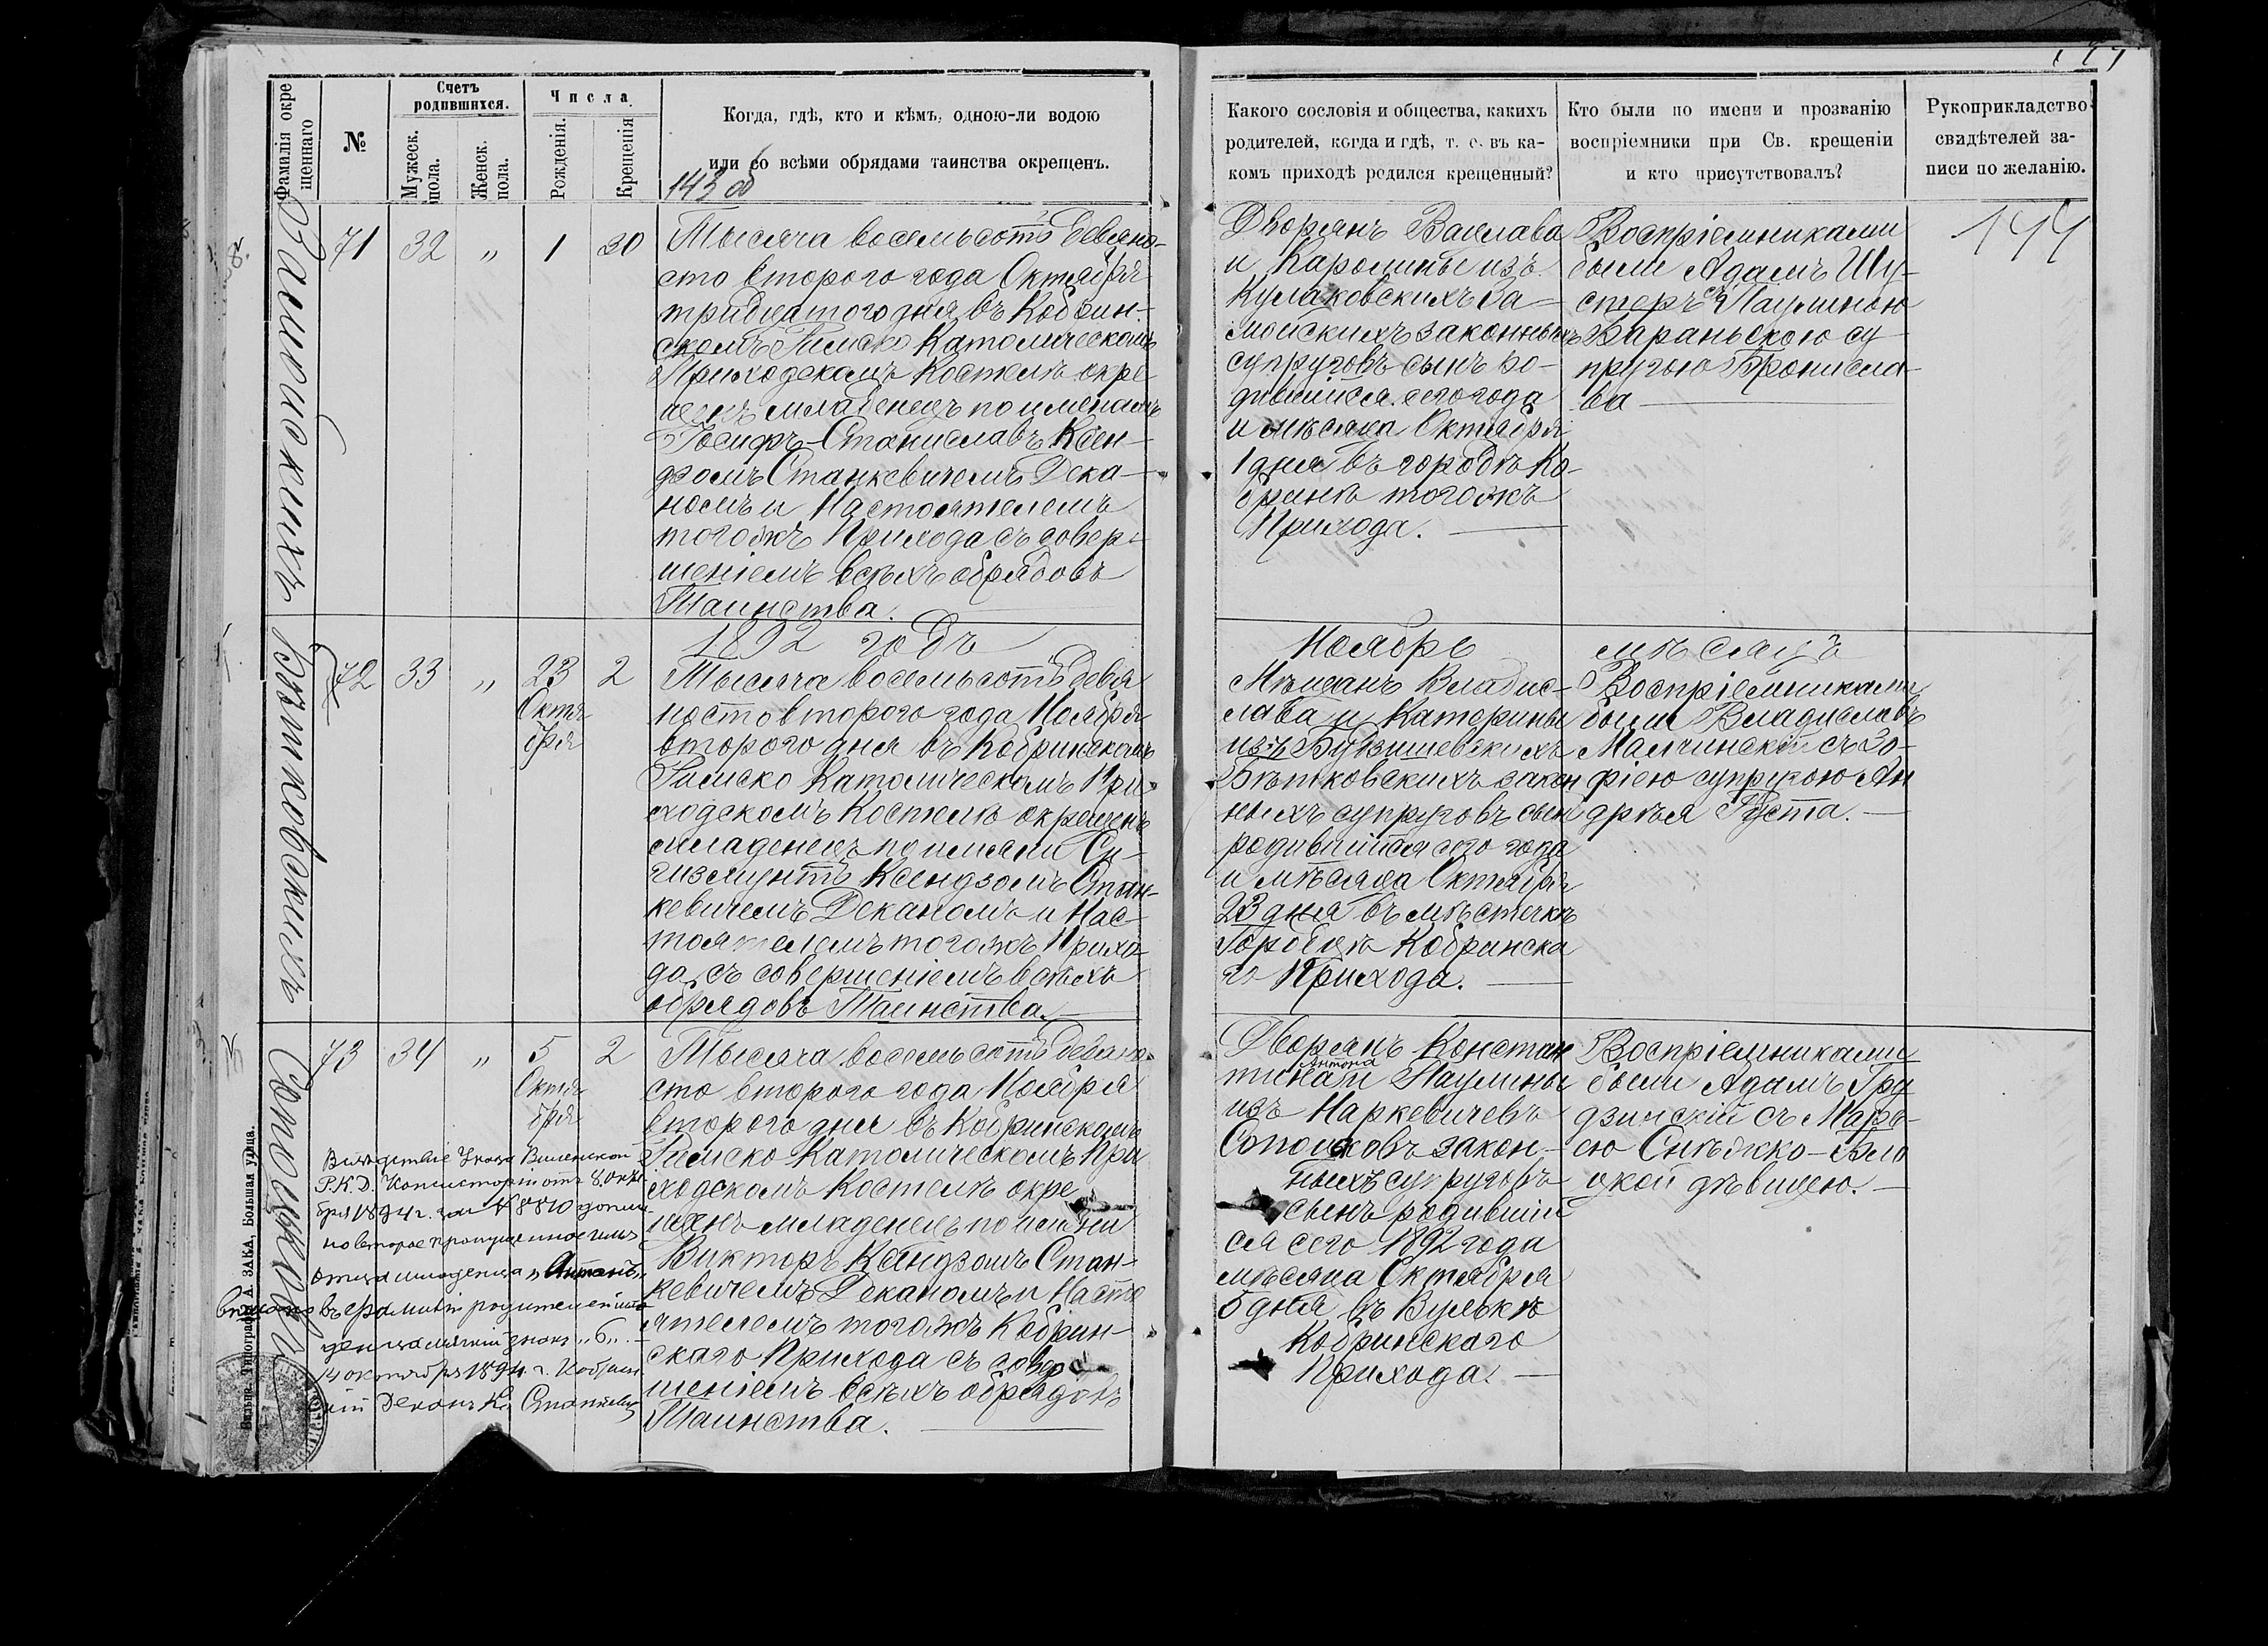 Фамилія окре
щеннаго
№
Счетъ
родившихся.
Мужеск.
пола.
Женск.
пола.
Числа
Рожденія.
Крещенія
Когда, гдѣ, кто и кѣмъ, одною-ли водою
или со всѣми обрядами таинства окрещенъ.
143 об
Какого сословія и общества, какихъ
родителей, когда и гдѣ, т. е. въ ка-
комъ приходѣ родился крещенный?
Кто были по имени и прозванію
воспріемники при Св. крещеніи
и кто присутствовалъ?
Рукоприкладство
свидѣтелей за-
писи по желанію.
144
Замойскихъ
71
32
"
1
30
Тысяча восемьсотъ девяно-
сто второго года Октября
тридцатого дня въ Кобрин-
скомъ Римско Католическомъ
Приходскомъ Костелѣ окре
щенъ младенецъ по именамъ
Іосифъ-Станиславъ Ксен-
дзомъ Станкевичемъ Дека-
номъ и Настоятелемъ
тогожъ Прихода съ совер-
шеніемъ всѣхъ обрядовъ
Таинства.
Дворянъ Вацлава
и Каролины изъ
Кулаковскихъ За-
мойскихъ законныхъ
супруговъ сынъ ро-
дившійся сего года
и мѣсяца Октября
1 дня въ городѣ Ко-
бринѣ тогожъ
Прихода.
Воспріемниками
были Адамъ Шу-
стеръ съ Паулиною
Бараньскою су-
пругою Бронисла-
ва
Бѣтковскихъ
1892 годъ
Ноябрь
мѣсяцъ
72
33
"
23
Октя
бря
2
Тысяча восемьсотъ девя
носто второго года Ноября
второго дня въ Кобринскомъ
Римско Католическомъ При
ходскомъ Костелѣ окрещенъ
младенецъ по имени Си-
гизмунтъ Ксендзомъ Стан-
кевичемъ Деканомъ и Нас-
тоятелемъ тогожъ Прихо-
да съ совершеніемъ всѣхъ
обрядовъ Таинства.
Мѣщанъ Владис-
лава и Катерины
изъ
Бѣтковскихъ закон
ныхъ супруговъ сынъ
родившійся сего года
и мѣсяца Октября
23 дня въ мѣстечкѣ
Городцѣ Кобринска
го Прихода.
Воспріемниками
были Владиславъ
Малчинскій съ Зо-
фіею супругою Ан
дрея Руста.
Сопоцьковъ
73
34
"
5
Октя
бря
2
Тысяча восемьсотъ девяно
сто второго года Ноября
второго дня въ Кобринскомъ
Римско Католическомъ При
ходскомъ Костелѣ окре
щенъ младенецъ по имени
Викторъ Ксендзомъ Стан-
кевичемъ Деканомъ и Насто
ятелемъ тогожъ Кобрин-
скаго Прихода съ совер
шеніемъ всѣхъ обрядовъ
Таинства.
Дворянъ Констан
Антона
тина и Паулины
изъ Наркевичевъ
Сопоцковъ закон-
ныхъ супруговъ
сынъ родившій
ся сего 1892 года
мѣсяца Октября
5 дня въ Вулькѣ
Кобринскаго
Прихода.
Воспріемниками
были Адамъ Гру
дзинскій съ Марь-
ею Снѣжко-Бло
цкой дѣвицею.
Вслѣдствіе Указа Виленской
Р.К.Д. Консисторіи отъ 8 октя
бря 1894 г. за № 8810
но второе пропущенное имя
отца младенца "Антонъ"
въ фамиліи родителей мла
денца мягкій знакъ "ь".
14 октября 1894 г. Кобрин
кій Деканъ Кс. Станкевичъ
Вильна. Типографія А. ЗАКА, Большая улица.